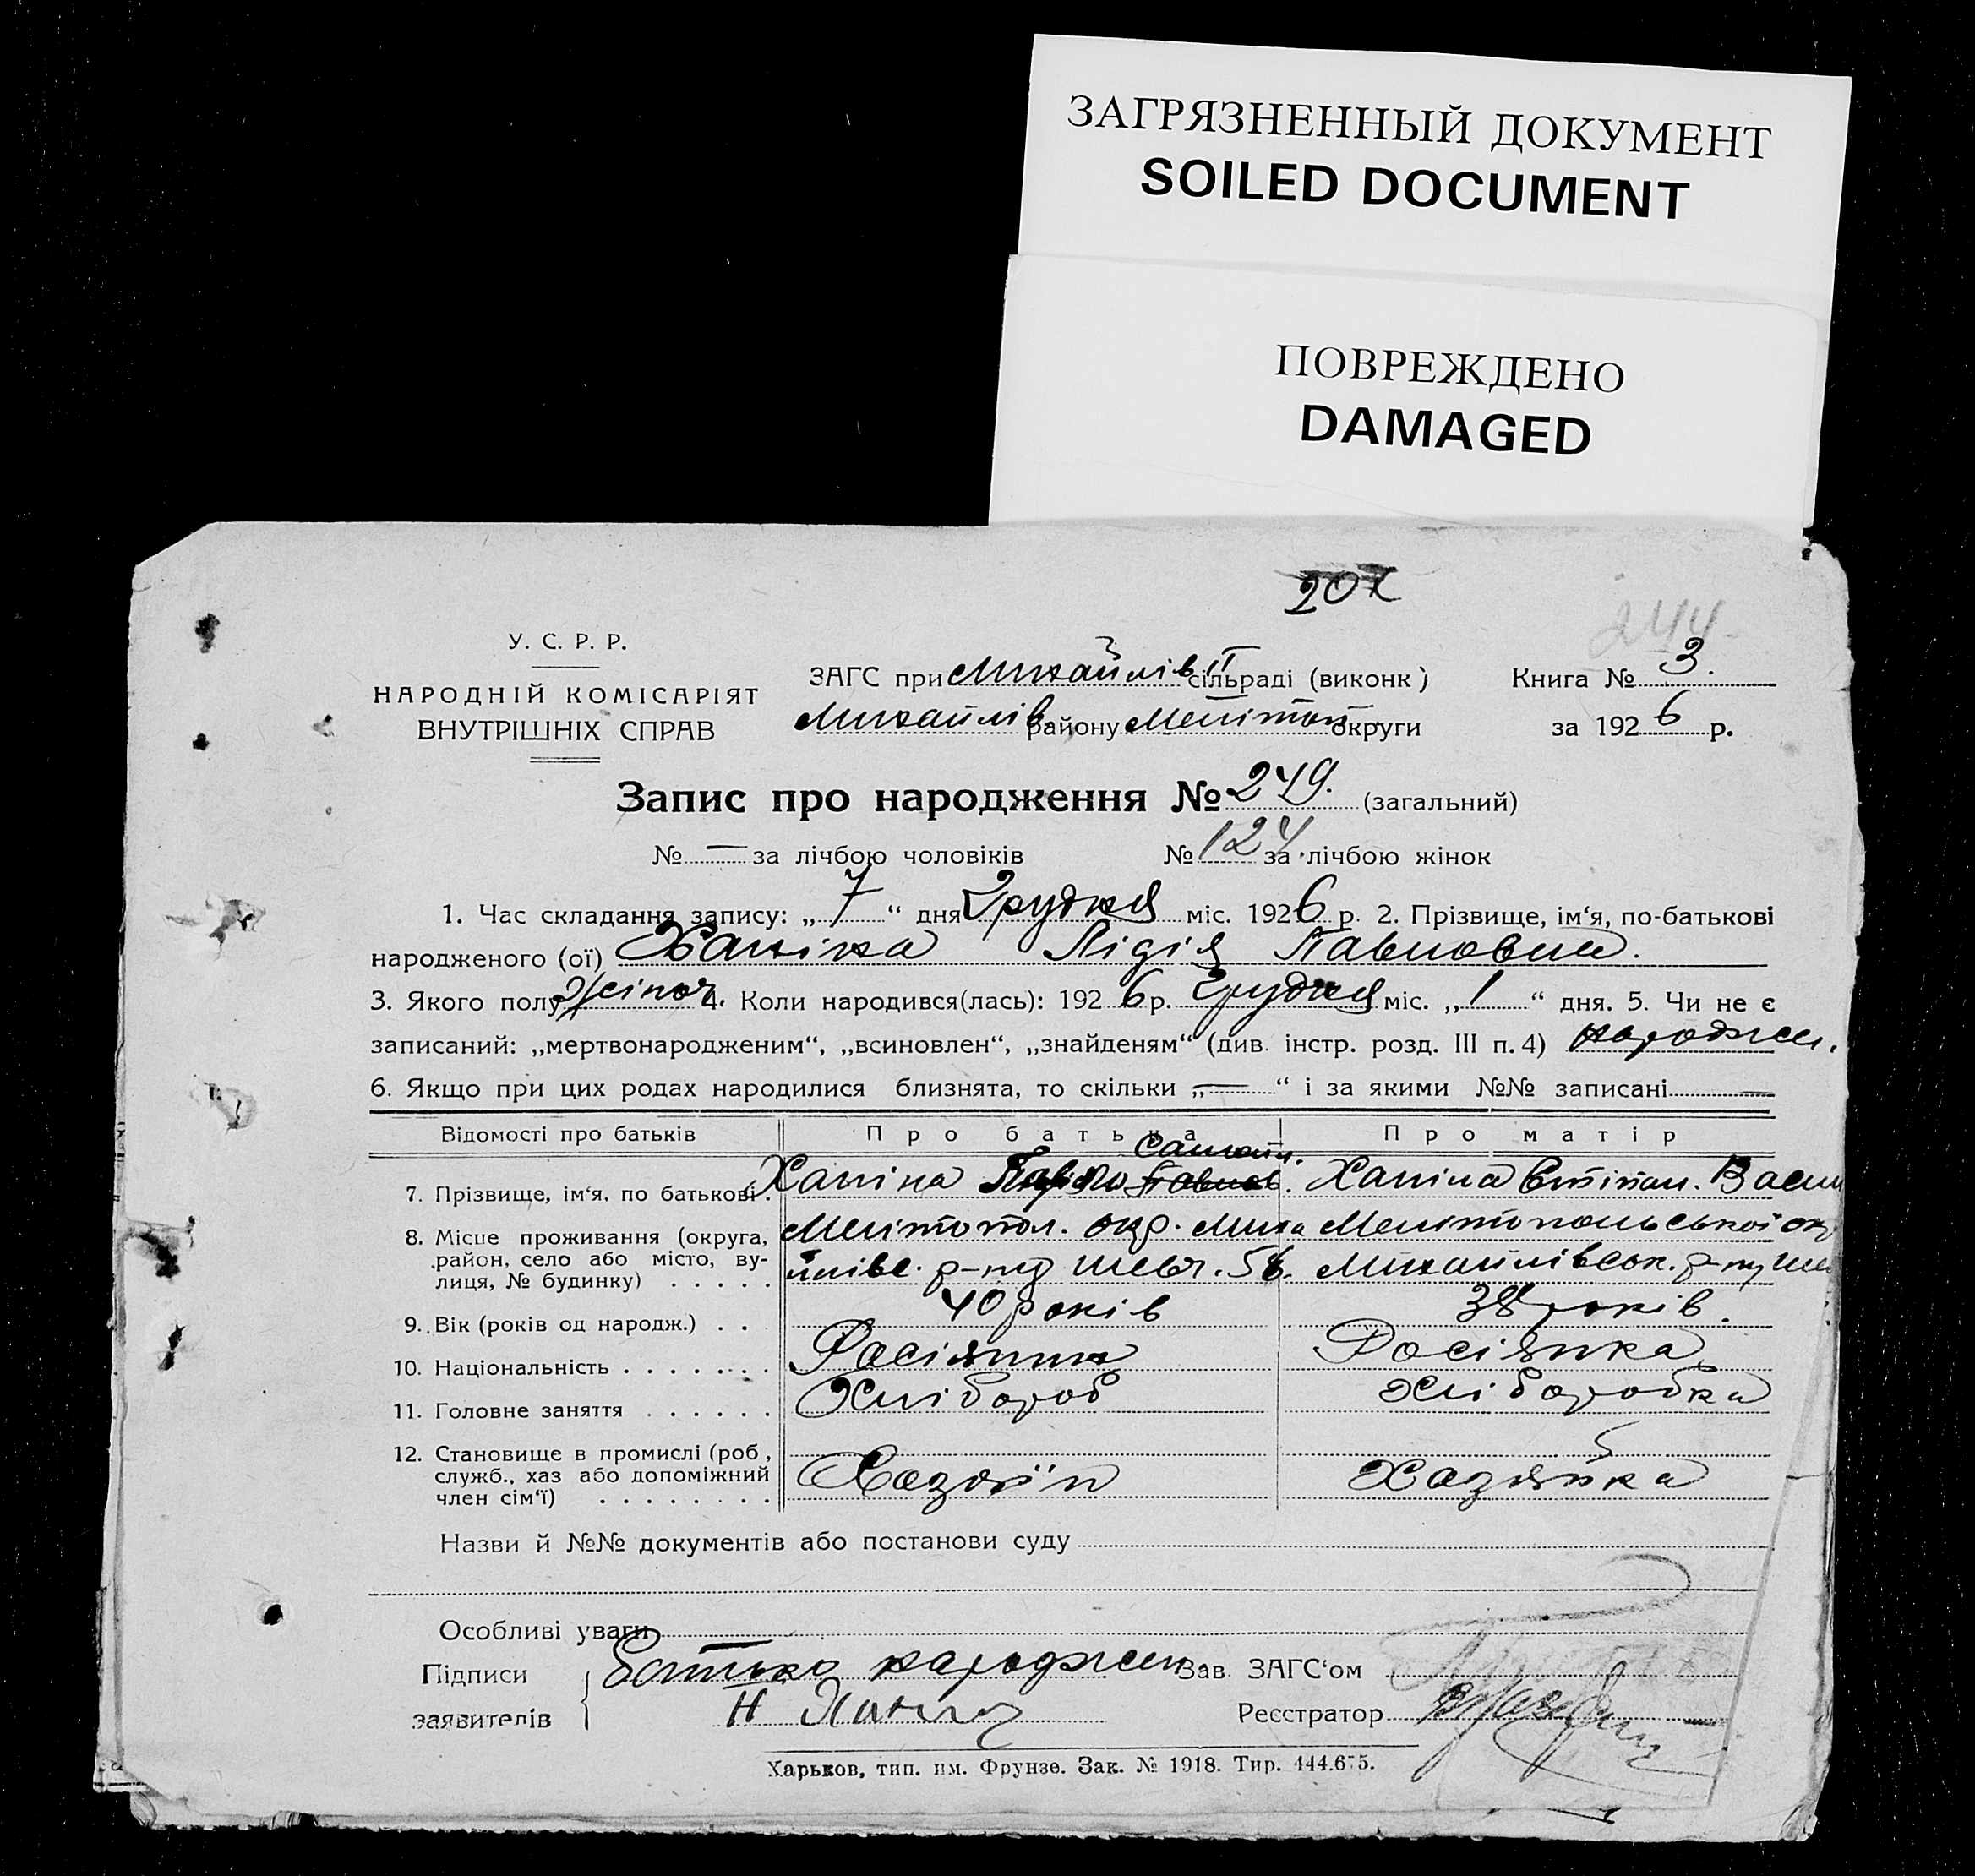 ЗАГРЯЗНЕННЫЙ ДОКУМЕНТ
SOILED DOCUMENT
ПОВРЕЖДЕНО
DAMAGED
244
У. С. Р. Р.
НАРОДНІЙ КОМІСАРІЯТ
ВНУТРІШНІХ СПРАВ
ЗАГС при Михайлів II сільраді (виконк) Книга № 3.
Михайлів району Мелітоп. округи за 1926 р.
Запис про народження № 249. (загальний)
№ — за лічбою чоловіків № 124 за лічбою жінок
1. Час складання запису: „ 7 “ дня Грудня міс. 1926 р. 2. Прізвище, ім‘я, по-батькові
народженого (ої) Ханіна Лідія Павловна.
3. Якого полу жіноч. 4. Коли народився(лась): 1926 р. Грудня міс. „ 1 “ дня. 5. Чи не є
записаний: „мертвонародженим“, „всиновлен“, „знайденям“ (див. інстр. розд. III п. 4) народжен.
6. Якщо при цих родах народилися близнята, то скільки „ — “ і за якими №№ записані —
Відомості про батьків Про батька Про матір
7. Прізвище, ім‘я, по батькові . Ханіна Павло Ханіна Степан. Васил
8. Місце проживання (округа, район, село або місто, вулиця, № будинку) . . . . .
Мелітопол. окр. Миха Мелітопольської ок.
йлівс. р-ну Шевч. 56. Михайлівськ. р-ну Ше
9. Вік (років од народж.) . . 40 років 38 років.
10. Національність . . . . . . . Росіянин Росіянка
11. Головне заняття . . . . . . Хлібороб Хліборобка
12. Становище в промислі (роб., служб., хаз або допоміжний член сім‘ї) . . . . . . . .
Хазяїн Хазяйка
Назви й №№ документів або постанови суду
Особливі уваги
Підписи Батько народжен. Зав. ЗАГС‘ом
заявителів Реєстратор
Харьков, тип. им. Фрунзе. Зак. № 1918. Тир. 444.675.